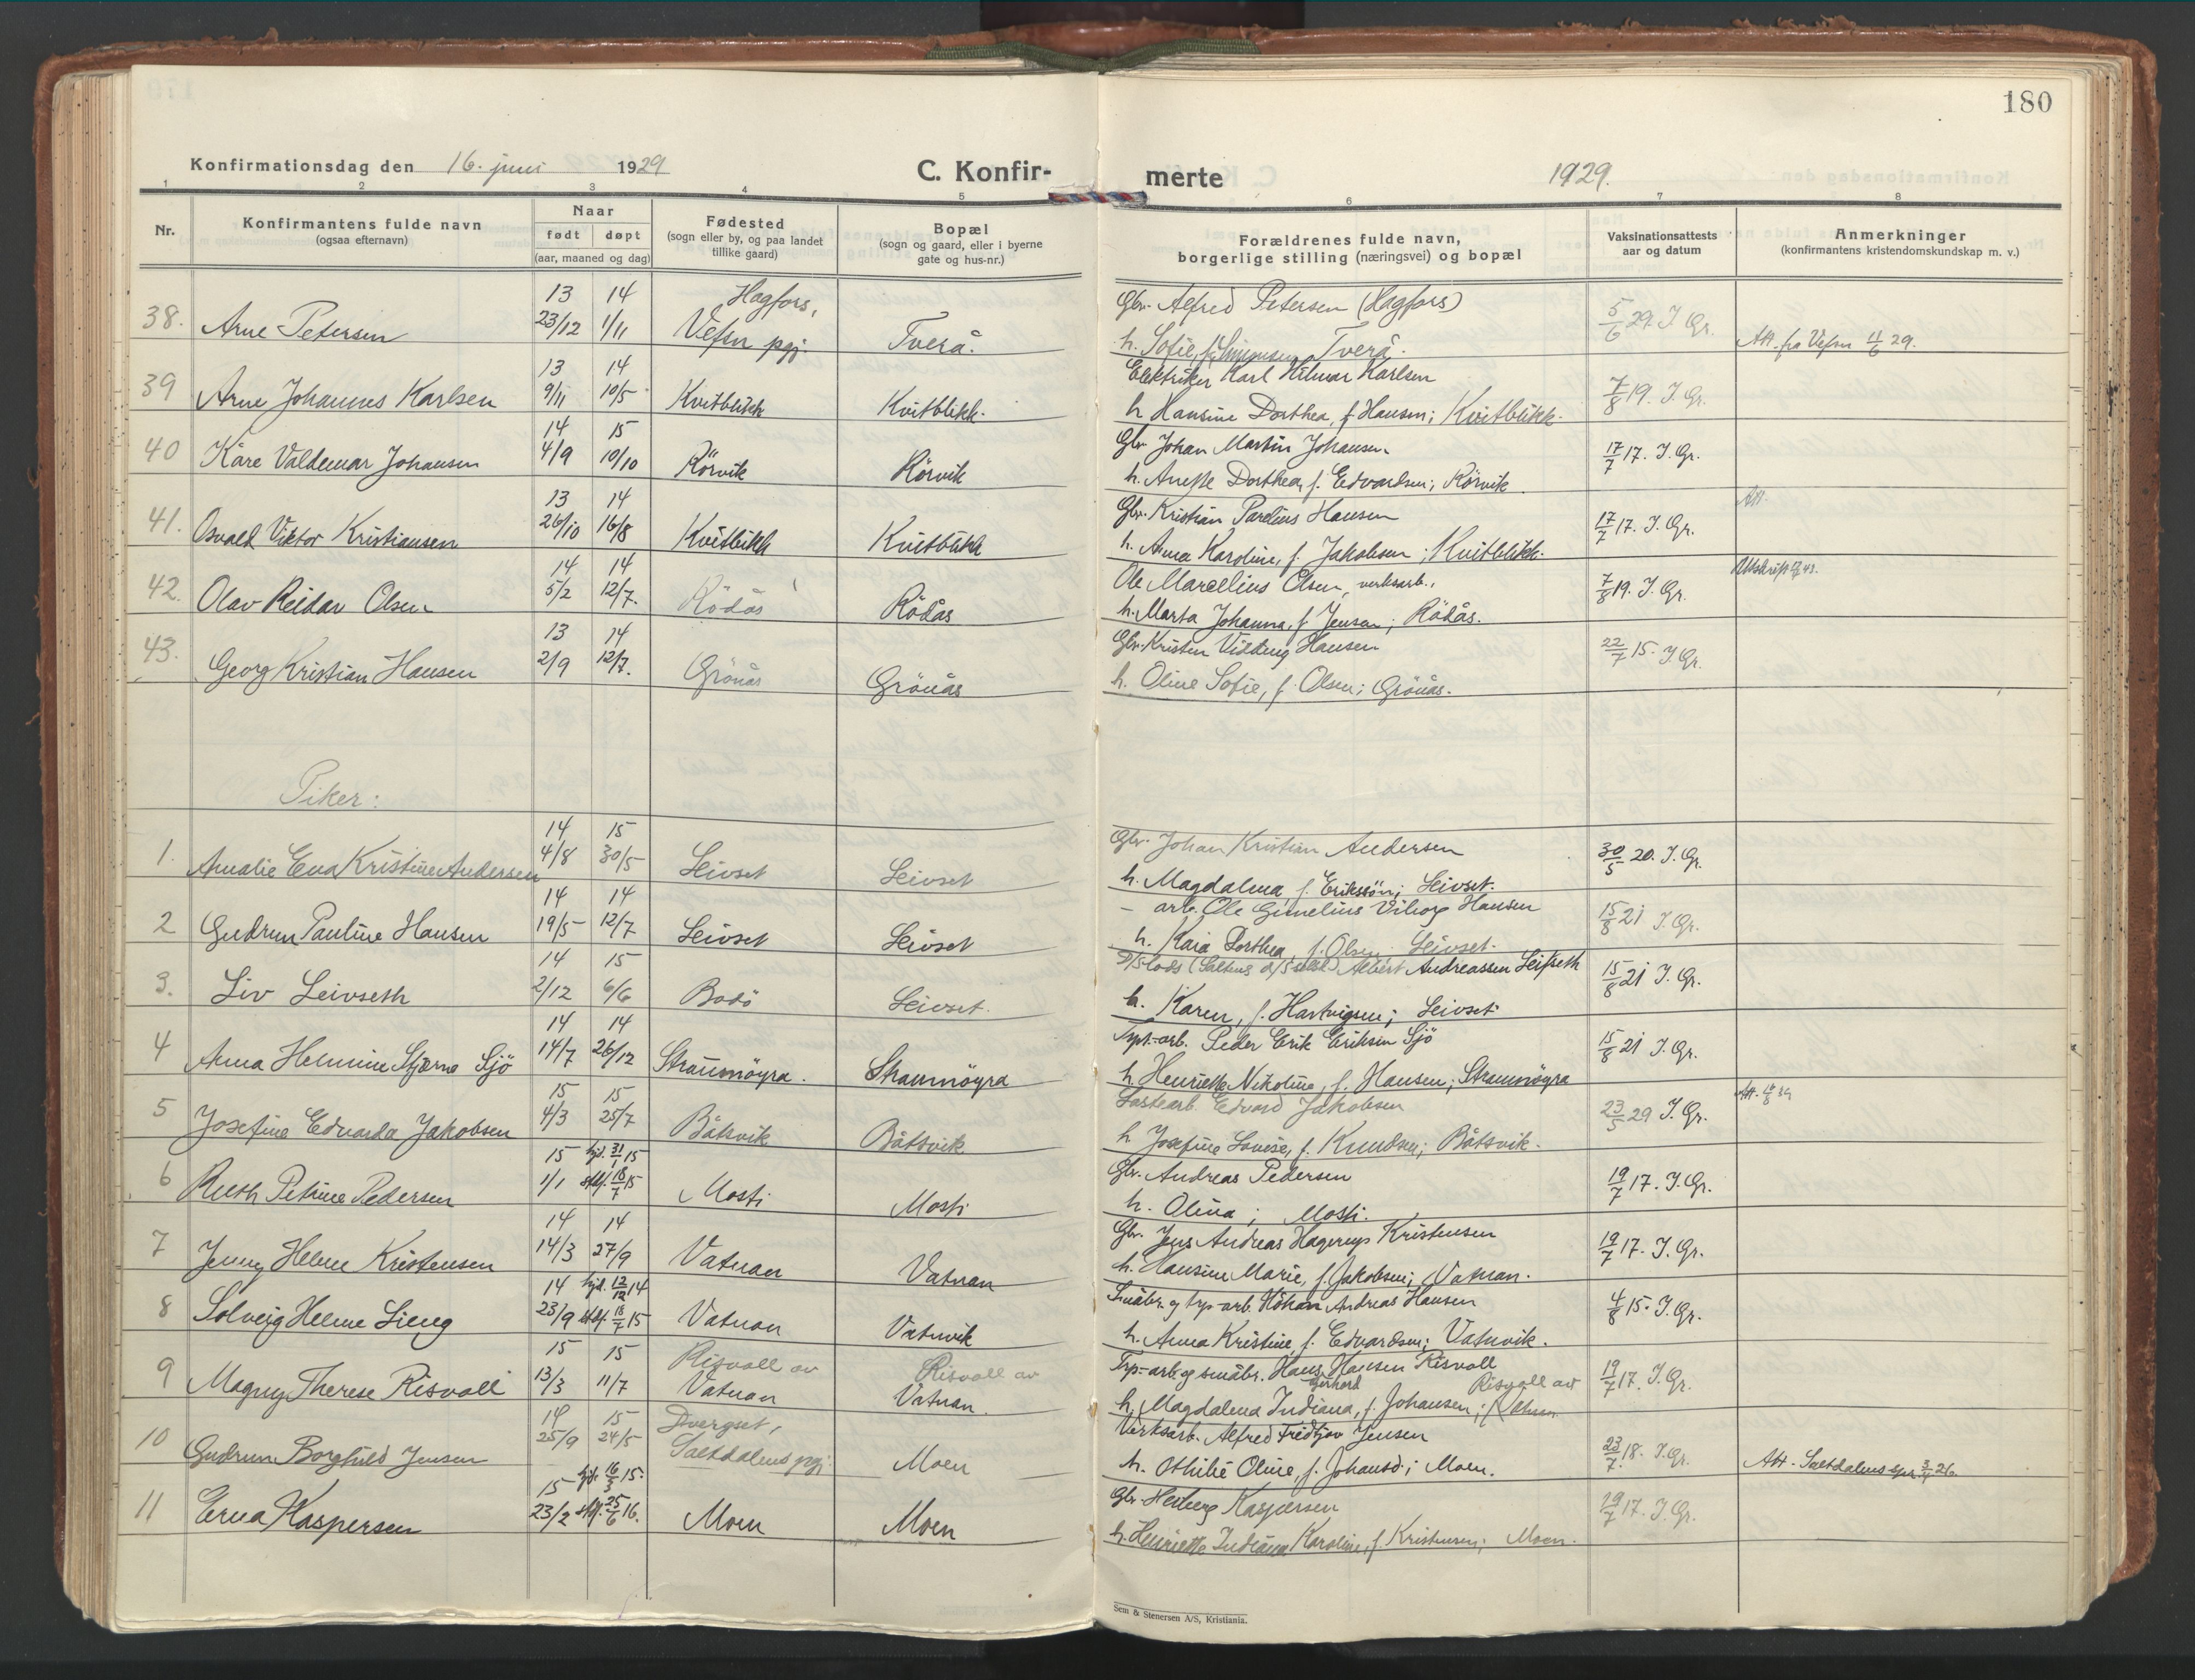 180
Konfirmationsdag den 16. juni 1929 C. Konfir-merte 1929.
1 2 3 4 5 6 7 8
Nr.
Konfirmantens fulde navn
(ogsaa efternavn)
Naar
født døpt
(aar, maaned og dag)
Fødested
(sogn eller by, og paa landet
tillike gaard)
Bopæl
(sogn og gaard, eller i byerne
gate og hus-nr.)
Forældrenes fulde navn,
borgerlige stilling (næringsvei) og bopæl
Vaksinationsattests
aar og datum
Anmerkninger
(konfirmantens kristendomskundskap m. v.)
13 14 Hagfors, Gbr. Alfred Petersen (Hagfors)
38. Arne Petersen 23/12 1/11 Vefsn pgj. Tverå. h. Sofie, Tverå. 5/6 29. J. Gr. Att. fra Vefsn 11/6 29.
13 14 Elektriker Karl Hilmar Karlsen
39 Arne Johannes Karlsen 9/11 10/5 Kvitblikk Kvitblikk. h. Hansine Dorthea, f. Hansen; Kvitblikk. 7/8 19. J. Gr.
14 15 Gbr. Johan Martin Johansen
40 Kåre Valdemar Johansen 4/9 10/10 Rörvik Rörvik h. Anette Dorthea, f. Edvardsen; Rörvik. 17/7 17. J. Gr.
13 14 Gbr. Kristian Parelius Hansen Att.
41. Osvald Viktor Kristiansen 26/10 16/8 Kvitblikk Kvitblikk h. Anna Karoline, f. Jakobsen; Kvitblikk. 17/7 17. J. Gr.
14 14 Ole Marcellius Olsen, verksarb., Utskrift
42. Olav Reidar Olsen 5/2 12/7. Rödås Rödås h. Marta Johanna, f. Jensen; Rödås. 7/8 19. J. Gr.
13 14 Gbr. Kristen Vilding Hansen
43. Georg Kristian Hansen 2/9 12/7. Grönås Grönås h. Oline Sofie, f. Olsen; Grönås. 22/7 15. J. Gr.
Piker:
14 15 Gbr. Johan Kristian Andersen
1. Amalie Eva Kristine Andersen 4/8 30/5 Leivset Leivset h. Magdalena, f. Eriksön; Leivset. 30/5 20. J. Gr.
14 14 – arb. Ole Hansen
2 Gudrun Pauline Hansen 19/5 12/7 Leivset Leivset h. Kaia Dorthea, f. Olsen Leivset. 15/8 21 J. Gr.
14 15 Albert Andreassen Leifseth
3. Liv Leivseth 2/12 6/6 Bodö Leivset. h. Karen, f. Hartvigsen; Leivset. 15/8 21 J. Gr.
14 14 Peder Erik Eriksen Sjö
4 Anna Helmine Stjerna Sjö 14/7 26/12 Straumöyra. Straumöyra h. Henriette Nikoline, f. Hansen; Straumöyra 15/8 21 J. Gr.
15 15 Lastearb. Edvard Jakobsen Att.
5 Josefine Edvarda Jakobsen 4/3 25/7 Båtsvik Båtsvik h. Josefine Lovise, f. Knudsen; Båtsvik. 23/5 29 J. Gr.
15 hjd. 31/1 15 Gbr. Andreas Pedersen
6 Ruth Petrine Pedersen 1/1 stf. 18/7 15 Mosti Mosti h. Olina; Mosti. 19/7 17. J. Gr.
14 14 Gbr. Jens Andreas Hagerup Kristensen
7 Jenny Helene Kristensen 14/3 27/9 Vatnan Vatnan h. Hansine Marie, f. Jakobsen; Vatnan. 19/7 17. J. Gr.
14 hjd. 12/12 14 Småbr. og trp-arb. Håkon Andreas Hansen
8 Solveig Helene Lieng 23/9 stf. 18/7 15 Vatnan Vatnvik h. Anna Kristine, f. Edvardsen; Vatnvik. 4/8 15. J. Gr.
15 15 Risvoll av Risvoll av Trp-arb. og småbr. Hans Hansen Risvoll
9 Magny Therese Risvoll 13/3 11/7 Vatnan Vatnan. h. Magdalena Indiana, f. Johansen; Risvoll av 19/7 17. J. Gr.
14 15 Dvergset, Verksarb. Alfred Fridtjov Jensen
10 Gudrun Borghild Jensen 25/9 24/5 Saltdalens pgj. Moen h. Othilie Oline, f. Johansd.; Moen. 23/7 18. J. Gr. Att. Saltdalens spr. 3/4 26.
15 hjd. 16/3 15. Gbr. Herberg Kaspersen
11 Erna Kaspersen 23/2 stf. 25/6 16. Moen Moen h. Henriette Indiana Karoline, f. Kristensen; Moen. 19/7 17. J. Gr.
Sem & Stenersen A/S, Kristiania.